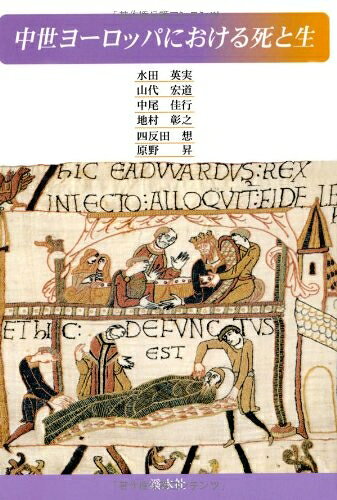 中世ヨーロッパにおける死と生
水田 英実
山代 宏道
中尾 佳行
地村 彰之
四反田 想
原野 昇
hIC EADVVARDVS: REX
IN LECTO: ALLOQVIT: FIDELE
ET hIC: DEFVNCTVS
EST
溪水社